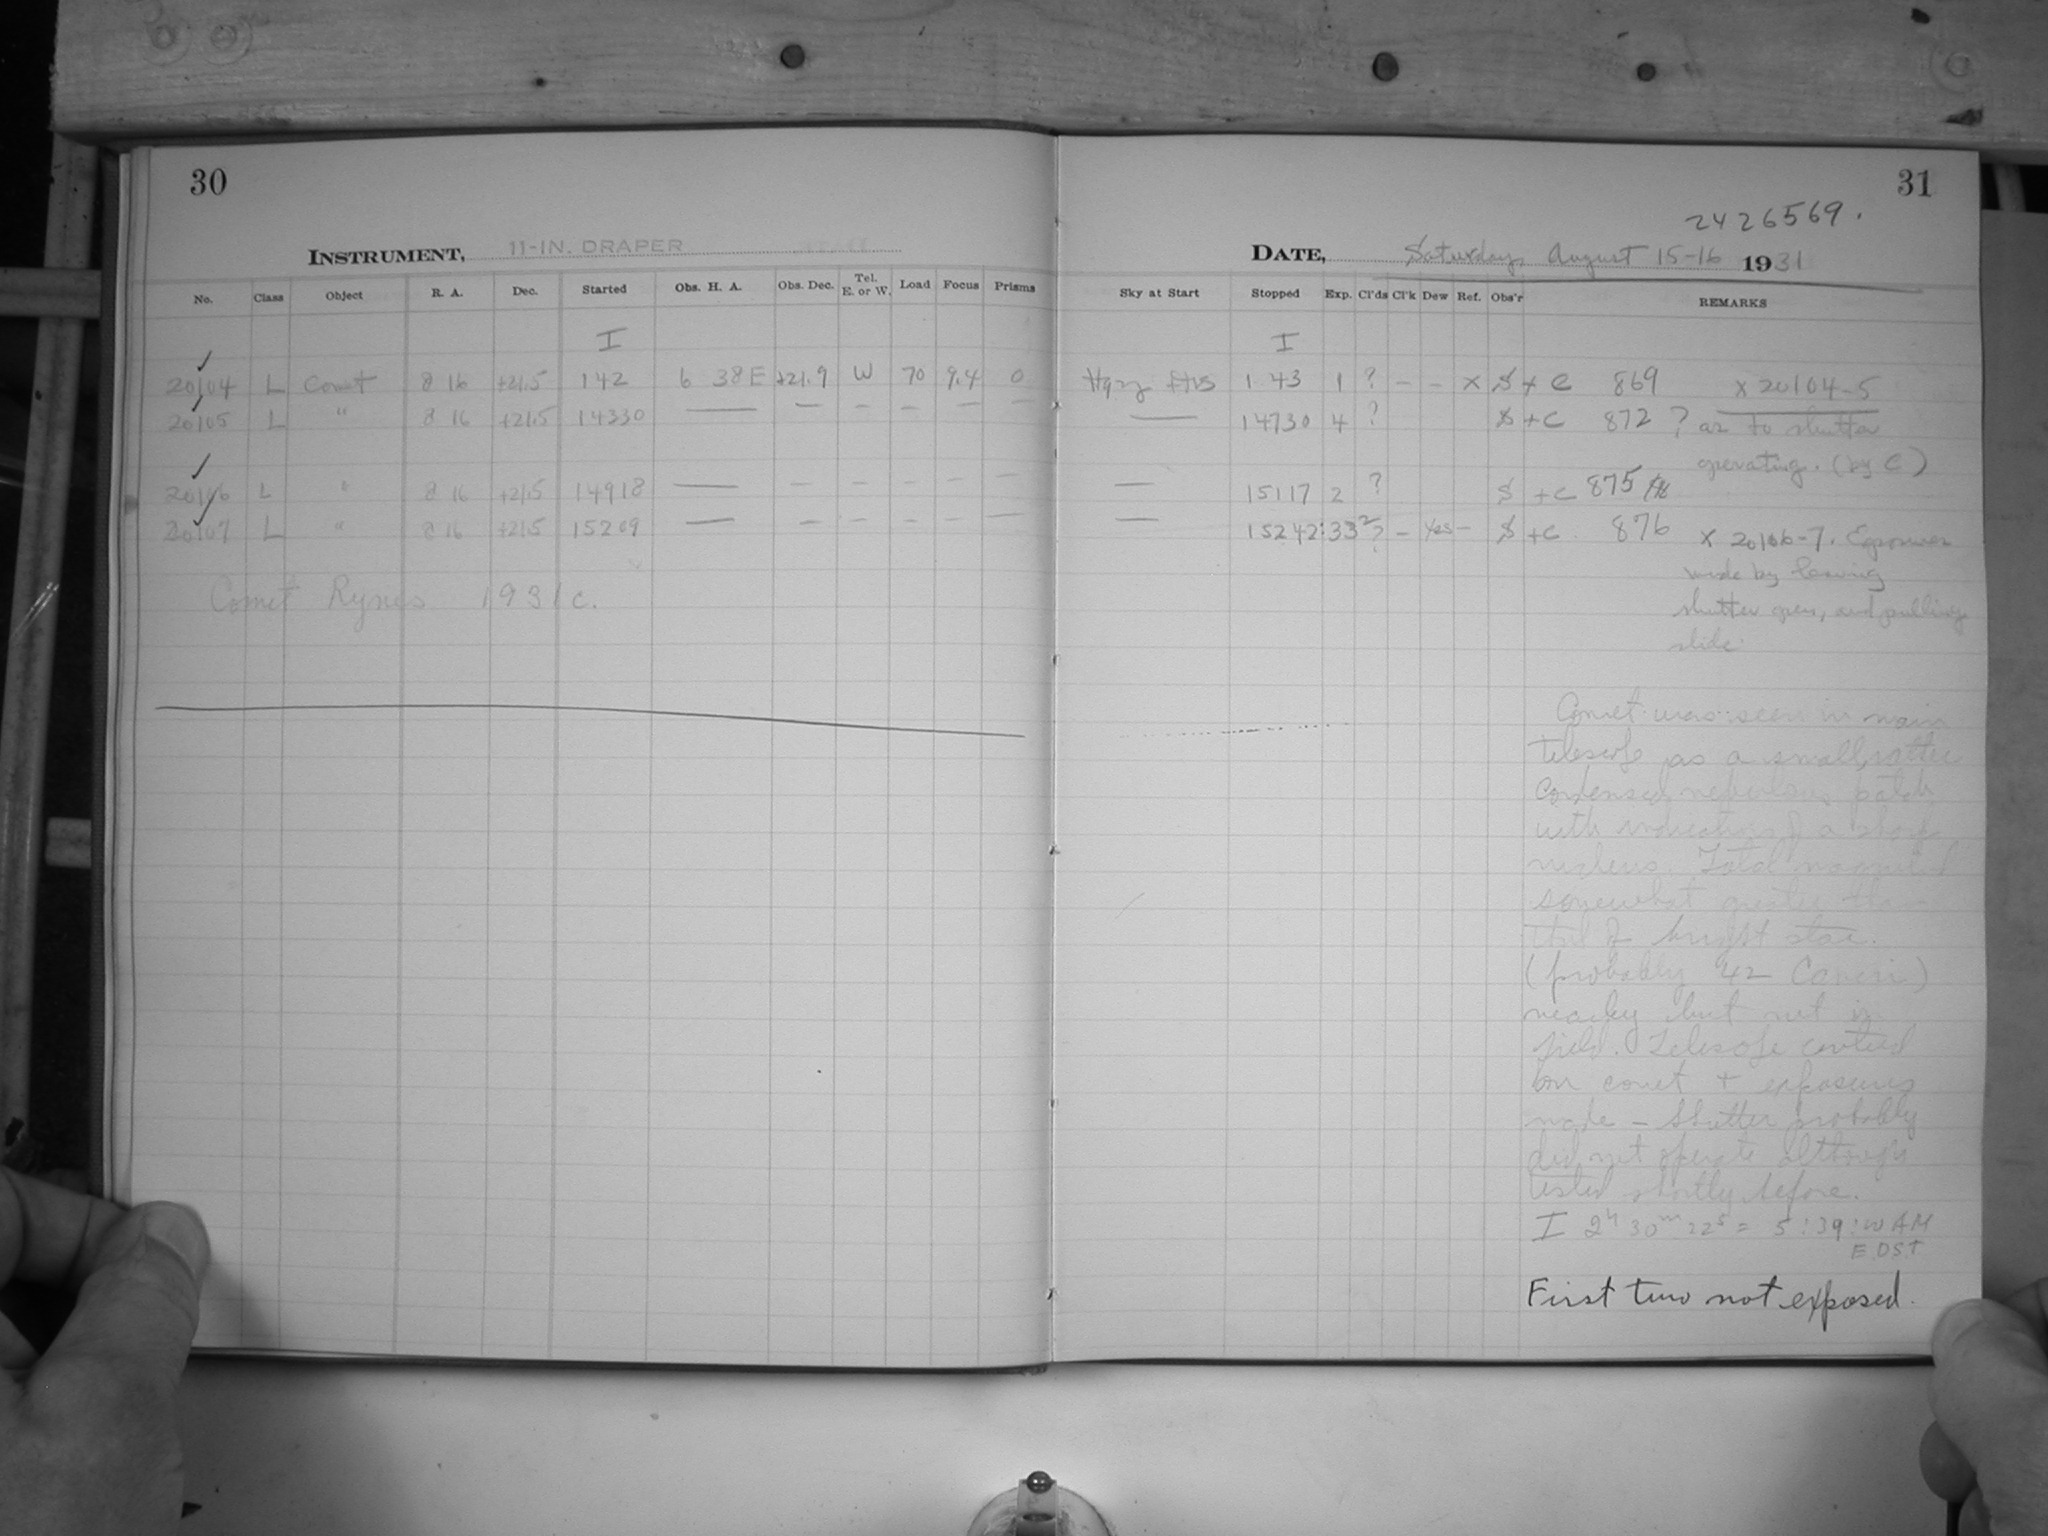 30
INSTRUMENT, 11-IN. DRAPER
No. Class Object R. A. Dec. Started Obs. H. A. Obs. Dec. Tel. E. or W. Load Focus Prisms
I
20104 L Comet 8 16 +21.5 142 6 38 E +21.9 W 70 9.4 0
20105 L " 8 16 +21.5 14330 — — — — — —
20106 L " 8 16 +21.5 14918 — — — — — —
20107 L " 8 16 +21.5 15209 — — — — — —
Comet Ryves 1931c.
31
2426569.
DATE, Saturday, August 15-16 1931
Sky at Start Stopped Exp. Cl'ds Cl'k Dew Ref. Obs'r REMARKS
I
1 43 1 ? - - x S + C 869 x 20104-5
— 14730 4 ? S + C 872 ? as to shutter
operating. (by C)
— 15117 2 ? S + C 875
— 15242 :33 ? - Yes - S + C 876 x 20106-7. Exposures
made by leaving
shutter open, and pulling
slide
Comet was seen in main
telescope as a small, rather
condensed nebulous patch
with indications of a
nucleus. Total
somewhat greater than
that of bright star.
(probably 42 Cancri)
nearby but not in
field. Telescope centred
on comet + exposures
made - Shutter probably
did not operate although
tested shortly before.
I 2h 30m 22s = 5:39: AM
E.D.S.T
First two not exposed.